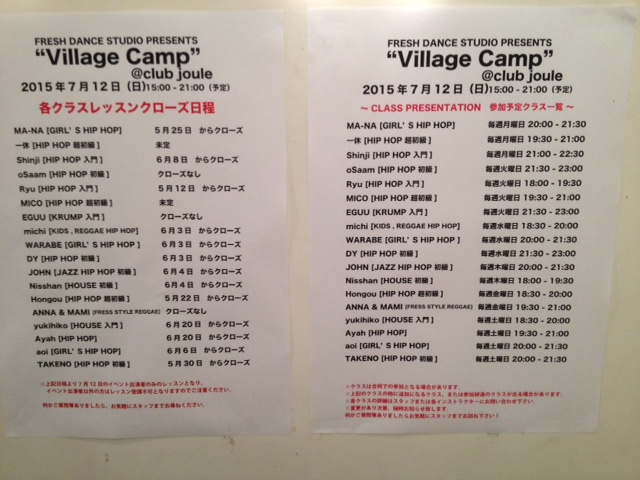 FRESH DANCE STUDIO PRESENTS
“Village Camp”
@club joule
2015年7月12日(日)15:00 - 21:00 (予定)
各クラスレッスンクローズ日程
MA-NA [GIRL'S HIP HOP] 5月25日 からクローズ
一休 [HIP HOP 超初級] 未定
Shinji [HIP HOP 入門] 6月8日 からクローズ
oSaam [HIP HOP 初級] クローズなし
Ryu [HIP HOP 入門] 5月12日 からクローズ
MICO [HIP HOP 超初級] 未定
EGUU [KRUMP 入門] クローズなし
michi [KIDS , REGGAE HIP HOP] 6月3日 からクローズ
WARABE [GIRL'S HIP HOP] 6月3日 からクローズ
DY [HIP HOP 初級] 6月3日 からクローズ
JOHN [JAZZ HIP HOP 初級] 6月4日 からクローズ
Nisshan [HOUSE 初級] 6月4日 からクローズ
Hongou [HIP HOP 超初級] 5月22日 からクローズ
ANNA & MAMI [FRESS STYLE REGGAE] クローズなし
yukihiko [HOUSE 入門] 6月20日 からクローズ
Ayah [HIP HOP] 6月20日 からクローズ
aoi [GIRL'S HIP HOP] 6月6日 からクローズ
TAKENO [HIP HOP 初級] 5月30日 からクローズ
※上記日程より7月12日のイベント出演者のみのレッスンとなり、
イベント出演者以外の方はレッスン受講不可となりますのでご注意ください。
何かご質問等ありましたら、お気軽にスタッフまでお尋ねください。
FRESH DANCE STUDIO PRESENTS
“Village Camp”
@club joule
2015年7月12日(日)15:00 - 21:00 (予定)
～ CLASS PRESENTATION 参加予定クラス一覧 ～
MA-NA [GIRL'S HIP HOP] 毎週月曜日 20:00 - 21:30
一休 [HIP HOP 超初級] 毎週月曜日 19:30 - 21:00
Shinji [HIP HOP 入門] 毎週月曜日 21:00 - 22:30
oSaam [HIP HOP 初級] 毎週火曜日 21:30 - 23:00
Ryu [HIP HOP 入門] 毎週火曜日 18:00 - 19:30
MICO [HIP HOP 超初級] 毎週火曜日 19:30 - 21:00
EGUU [KRUMP 入門] 毎週火曜日 21:30 - 23:00
michi [KIDS , REGGAE HIP HOP] 毎週水曜日 18:30 - 20:00
WARABE [GIRL'S HIP HOP] 毎週水曜日 20:00 - 21:30
DY [HIP HOP 初級] 毎週水曜日 21:30 - 23:00
JOHN [JAZZ HIP HOP 初級] 毎週木曜日 20:00 - 21:30
Nisshan [HOUSE 初級] 毎週木曜日 18:00 - 19:30
Hongou [HIP HOP 超初級] 毎週金曜日 18:30 - 20:00
ANNA & MAMI [FRESS STYLE REGGAE] 毎週金曜日 19:30 - 21:00
yukihiko [HOUSE 入門] 毎週土曜日 18:30 - 20:00
Ayah [HIP HOP] 毎週土曜日 19:30 - 21:00
aoi [GIRL'S HIP HOP] 毎週土曜日 20:00 - 21:30
TAKENO [HIP HOP 初級] 毎週土曜日 20:00 - 21:30
※クラスは合同での参加となる場合があります。
※上記のクラスの他に追加になるクラス、または参加辞退のクラスが出る場合があります。
※各クラスの詳細はスタッフまたは各インストラクターにお問い合わせ下さい。
※変更があり次第、随時お知らせ致します。
何かご質問等ありましたらお気軽にスタッフまでお訪ね下さい!